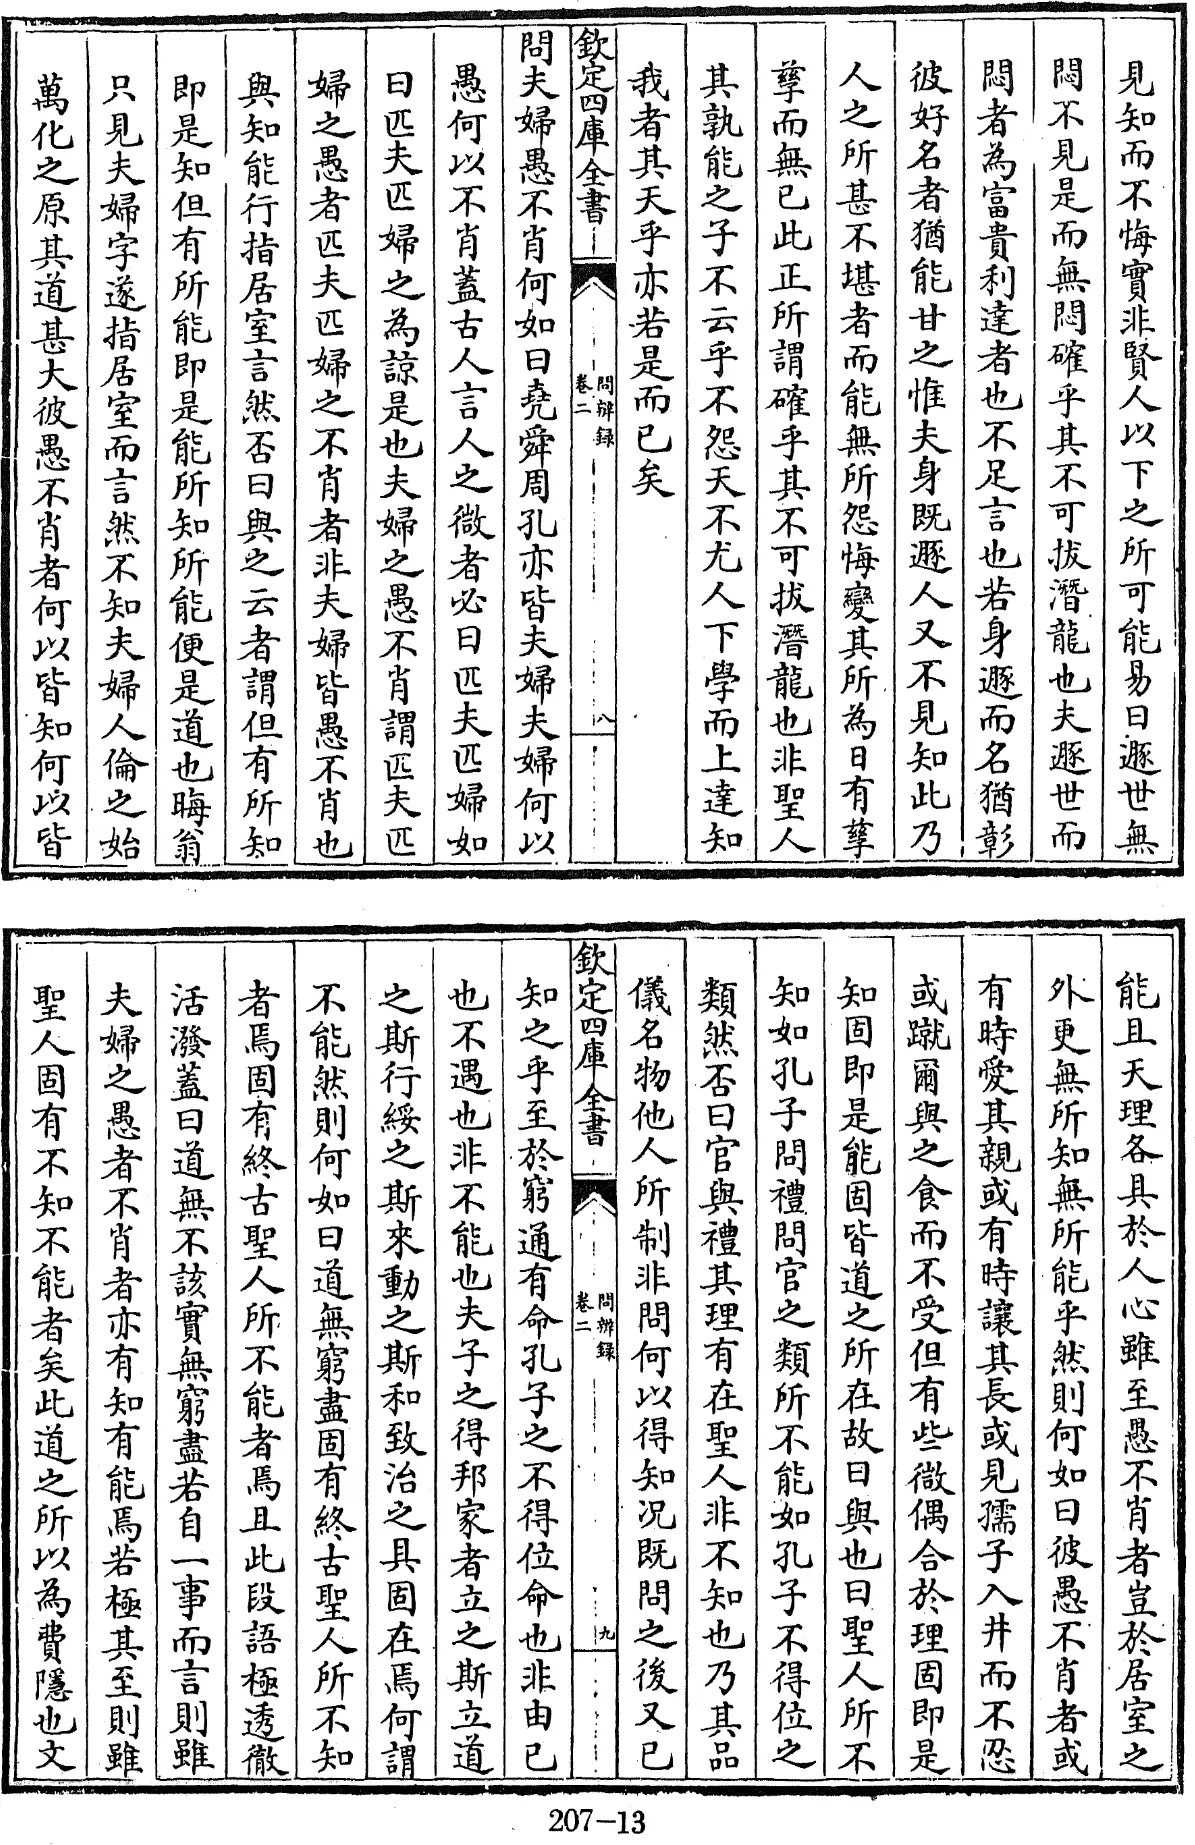 見知而不悔實非賢人以下之所可能易曰遯世無
悶不見是而無悶確乎其不可拔潛龍也夫遯世而
悶者為富貴利達者也不足言也若身遯而名猶彰
彼好名者猶能甘之惟夫身既遯人又不見知此乃
人之所甚不堪者而能無所怨悔變其所為日有孳
孳而無已此正所謂確乎其不可拔潛龍也非聖人
其孰能之子不云乎不怨天不尤人下學而上達知
我者其天乎亦若是而已矣
欽定四庫全書
問辨錄
卷二
八
問夫婦愚不肖何如曰堯舜周孔亦皆夫婦夫婦何以
愚何以不肖蓋古人言人之微者必曰匹夫匹婦如
曰匹夫匹婦之為諒是也夫婦之愚不肖謂匹夫匹
婦之愚者匹夫匹婦之不肖者非夫婦皆愚不肖也
與知能行指居室言然否曰與之云者謂但有所知
即是知但有所能即是能所知所能便是道也晦翁
只見夫婦字遂指居室而言然不知夫婦人倫之始
萬化之原其道甚大彼愚不肖者何以皆知何以皆
能且天理各具於人心雖至愚不肖者豈於居室之
外更無所知無所能乎然則何如曰彼愚不肖者或
有時愛其親或有時讓其長或見孺子入井而不忍
或蹴爾與之食而不受但有些微偶合於理固即是
知固即是能固皆道之所在故曰與也曰聖人所不
知如孔子問禮問官之類所不能如孔子不得位之
類然否曰官與禮其理有在聖人非不知也乃其品
儀名物他人所制非問何以得知况既問之後又已
欽定四庫全書
問辨錄
卷二
九
知之乎至於窮通有命孔子之不得位命也非由己
也不遇也非不能也夫子之得邦家者立之斯立道
之斯行綏之斯來動之斯和致治之具固在焉何謂
不能然則何如曰道無窮盡固有終古聖人所不知
者焉固有終古聖人所不能者焉且此段語極透徹
活潑蓋曰道無不該實無窮盡若自一事而言則雖
夫婦之愚者不肖者亦有知有能焉若極其至則雖
聖人固有不知不能者矣此道之所以為費隱也文
207-13